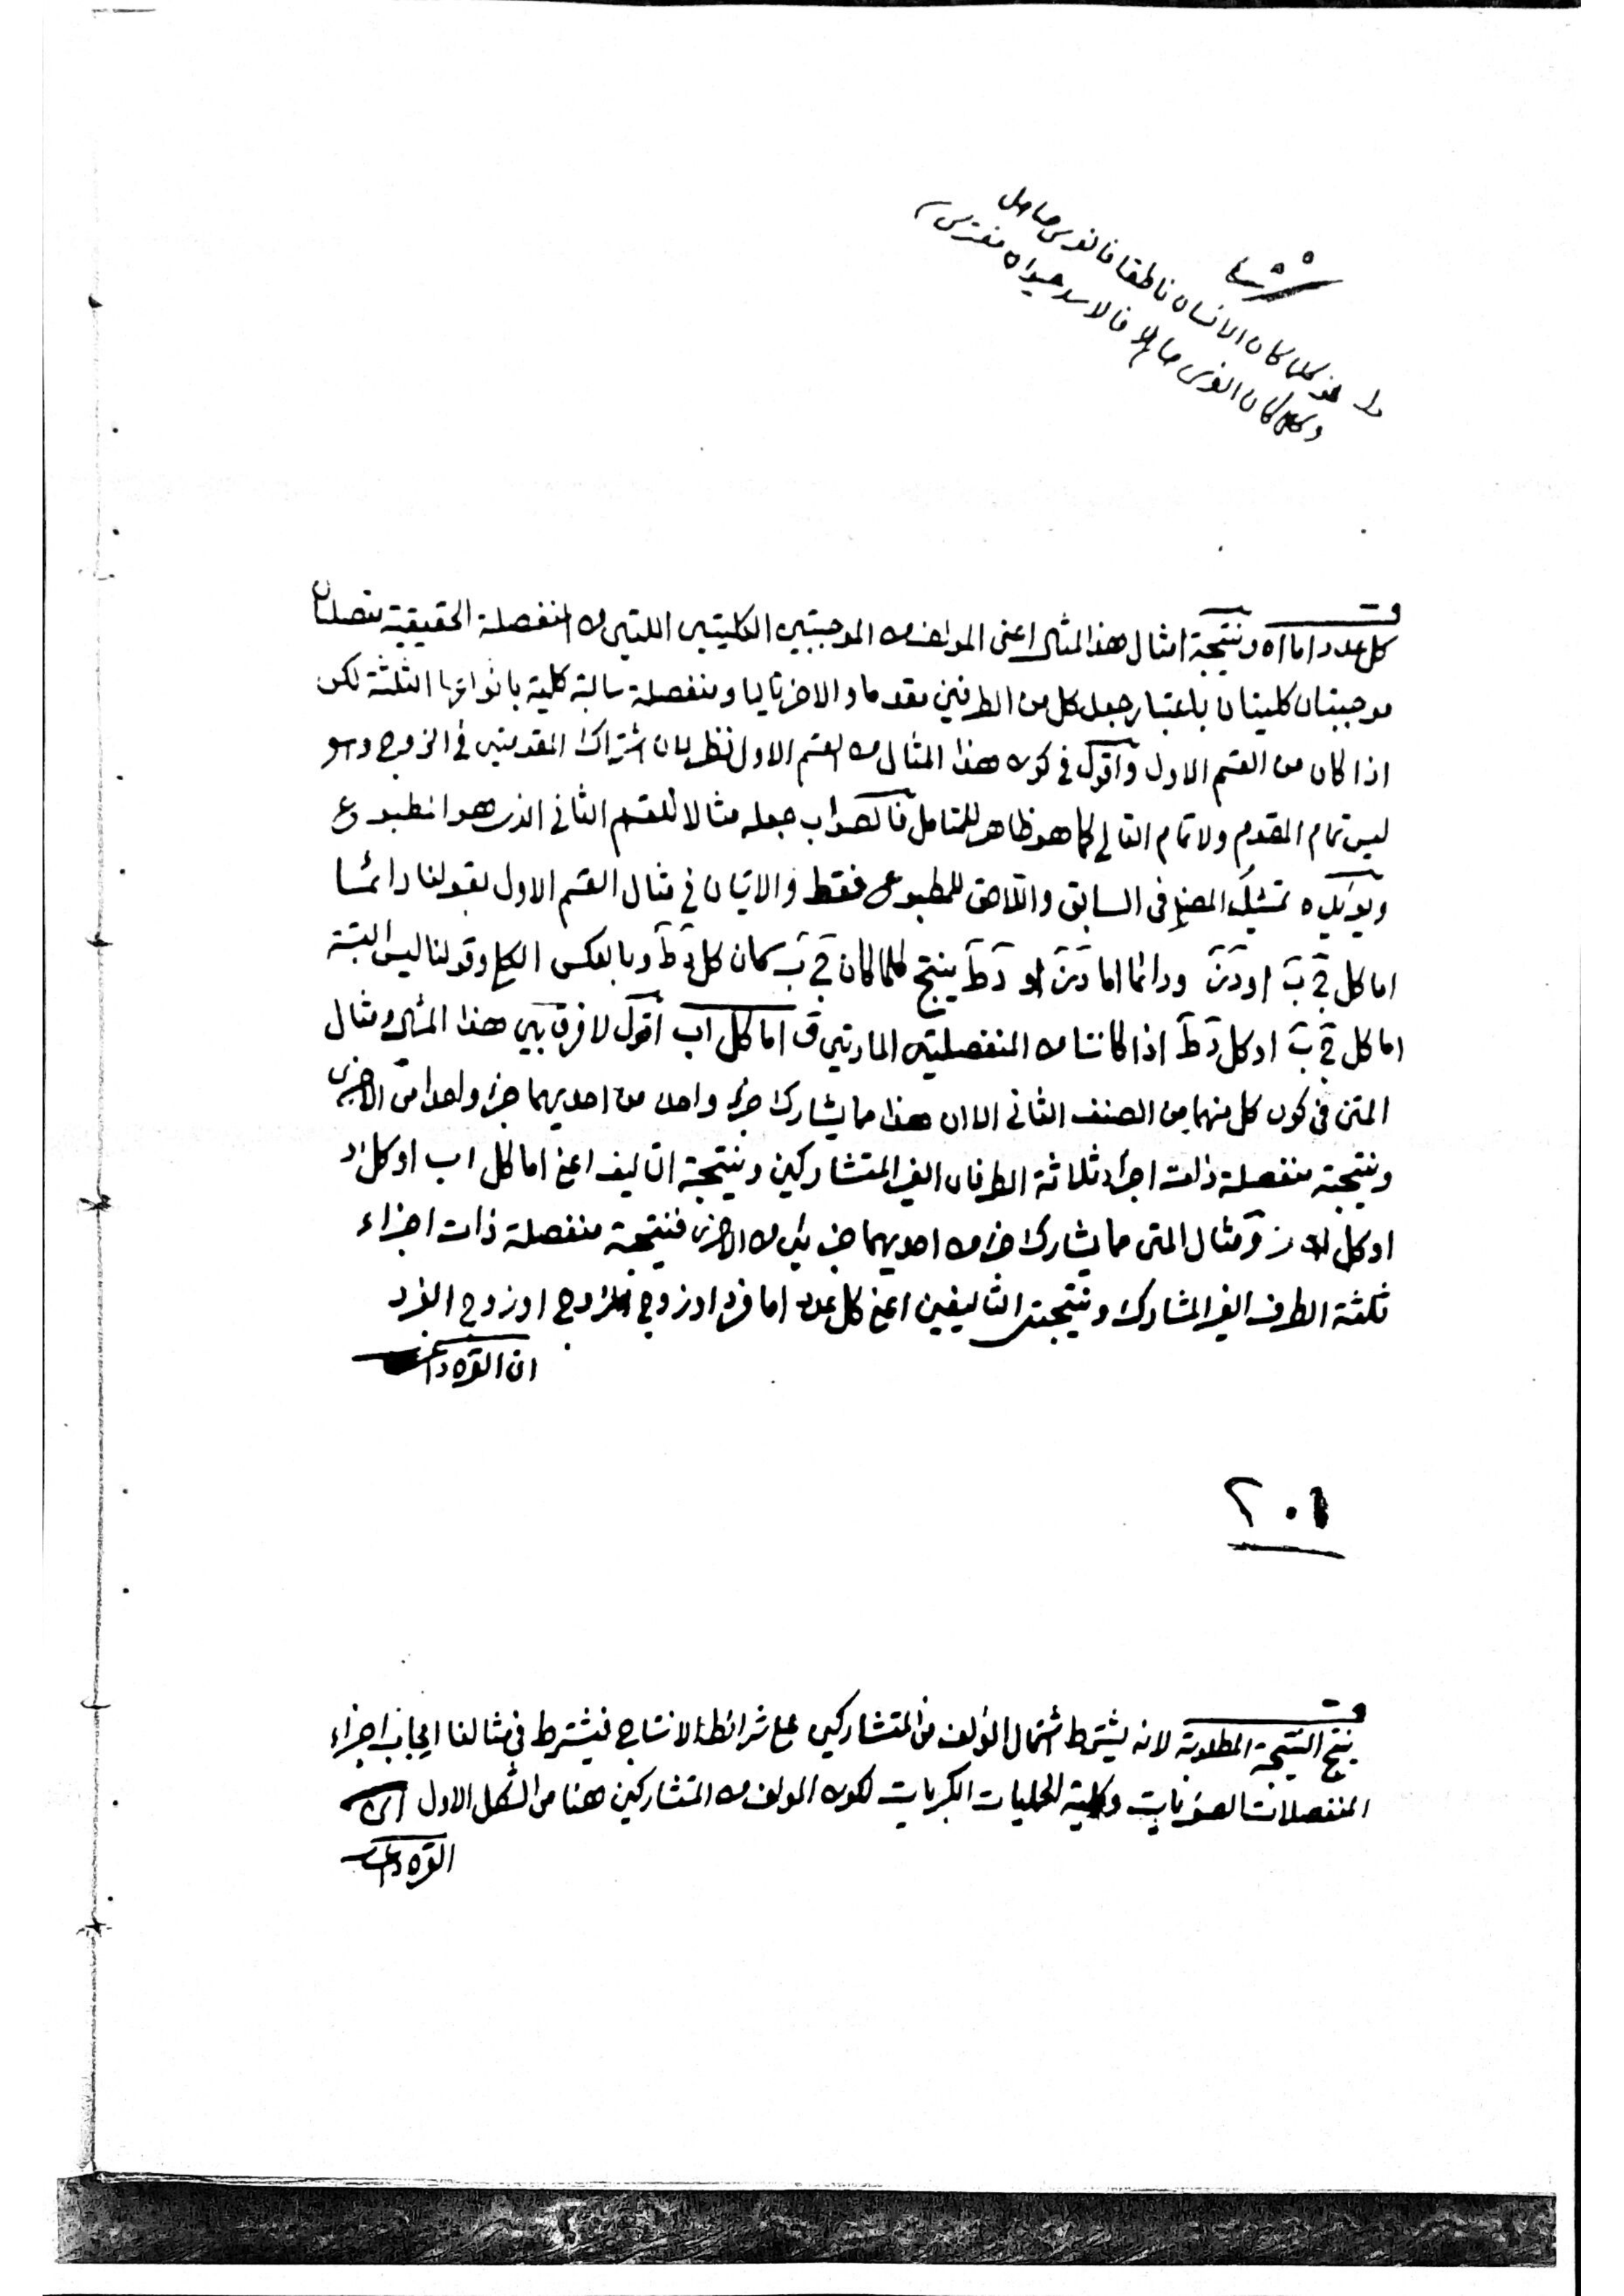 كلما كان الانسان ناطقا فالفرس صاهل
وكلما كان الفرس صاهلا فالاسد حيوان مفترس
كل عدد اما اه ونتيجة امثال هذا المثال اعنى المؤلف من الموجبتين الكليتين اللتين من المنفصلة الحقيقية متصلتان
موجبتان كليتان باعتبار جعل كل من الطرفين مقدما والاخر تاليا ومنفصلة سالبة كلية بانواعها الثلثة لكن
اذا كان من القسم الاول واقول في كون هذا المثال من القسم الاول نظر لان اشتراك المقدمتين في الزوج وهو
ليس تمام المقدم ولا تمام التالى كما هو ظاهر للمتامل فالصواب جعله مثالا للقسم الثانى الذى هو المطبوع
ويؤيده تمثيل المصنف في السابق واللاحق للمطبوع فقط والاتيان في مثال القسم الاول بقولنا دائما
اما كل ج ب او د ز ودائما اما د ز او د ط ينتج كلما كان ج ب كان كل د ط وبالعكس الكلي وقولنا ليس البتة
اما كل ج ب او كل د ط اذا كانتا من المنفصلتين المارتين ق اما كل اب اقول لا فرق بين هذا المثال ومثال
المتن في كون كل منهما من الصنف الثانى الا ان هذا مما يشارك جزء واحد من احديهما جزء واحدا من الاخرى
ونتيجة منفصلة ذات اجزاء ثلاثة الطرفان الغير المتشاركين ونتيجة التاليف اعنى اما كل اب او كل اد
او كل ه ز ومثال المتن مما يشارك جزء من احديهما جزئين من الاخرى فنتيجة منفصلة ذات اجزاء
ثلثة الطرف الغير المشارك ونتيجتى التاليفين اعنى كل عدد اما فرد او زوج الزوج او زوج الفرد
ابن القره داغى
٢٠١
ينتج النتيجة المطلوبة لانه يشترط اشتمال المؤلف من المتشاركين على شرائط الانتاج فيشترط في مثالنا ايجاب اجزاء
المنفصلات الصغريات وكلية الحمليات الكبريات لكون المؤلف من المتشاركين هنا من الشكل الاول ابن
القره داغى